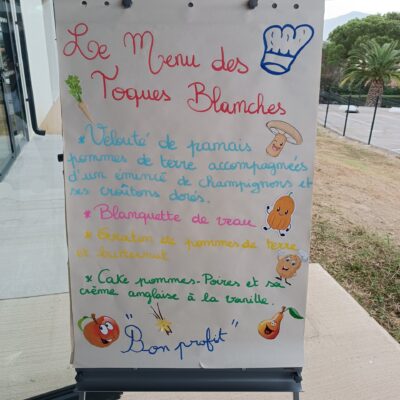 Le Menu des
Toques Blanches
* Velouté de panais
pommes de terre accompagnées
d'un émincé de champignons et
ses croûtons dorés.
* Blanquette de veau
* Gratin de pommes de terre
et butternut
* Cake pommes-Poires et sa
crème anglaise à la vanille.
"Bon profit"